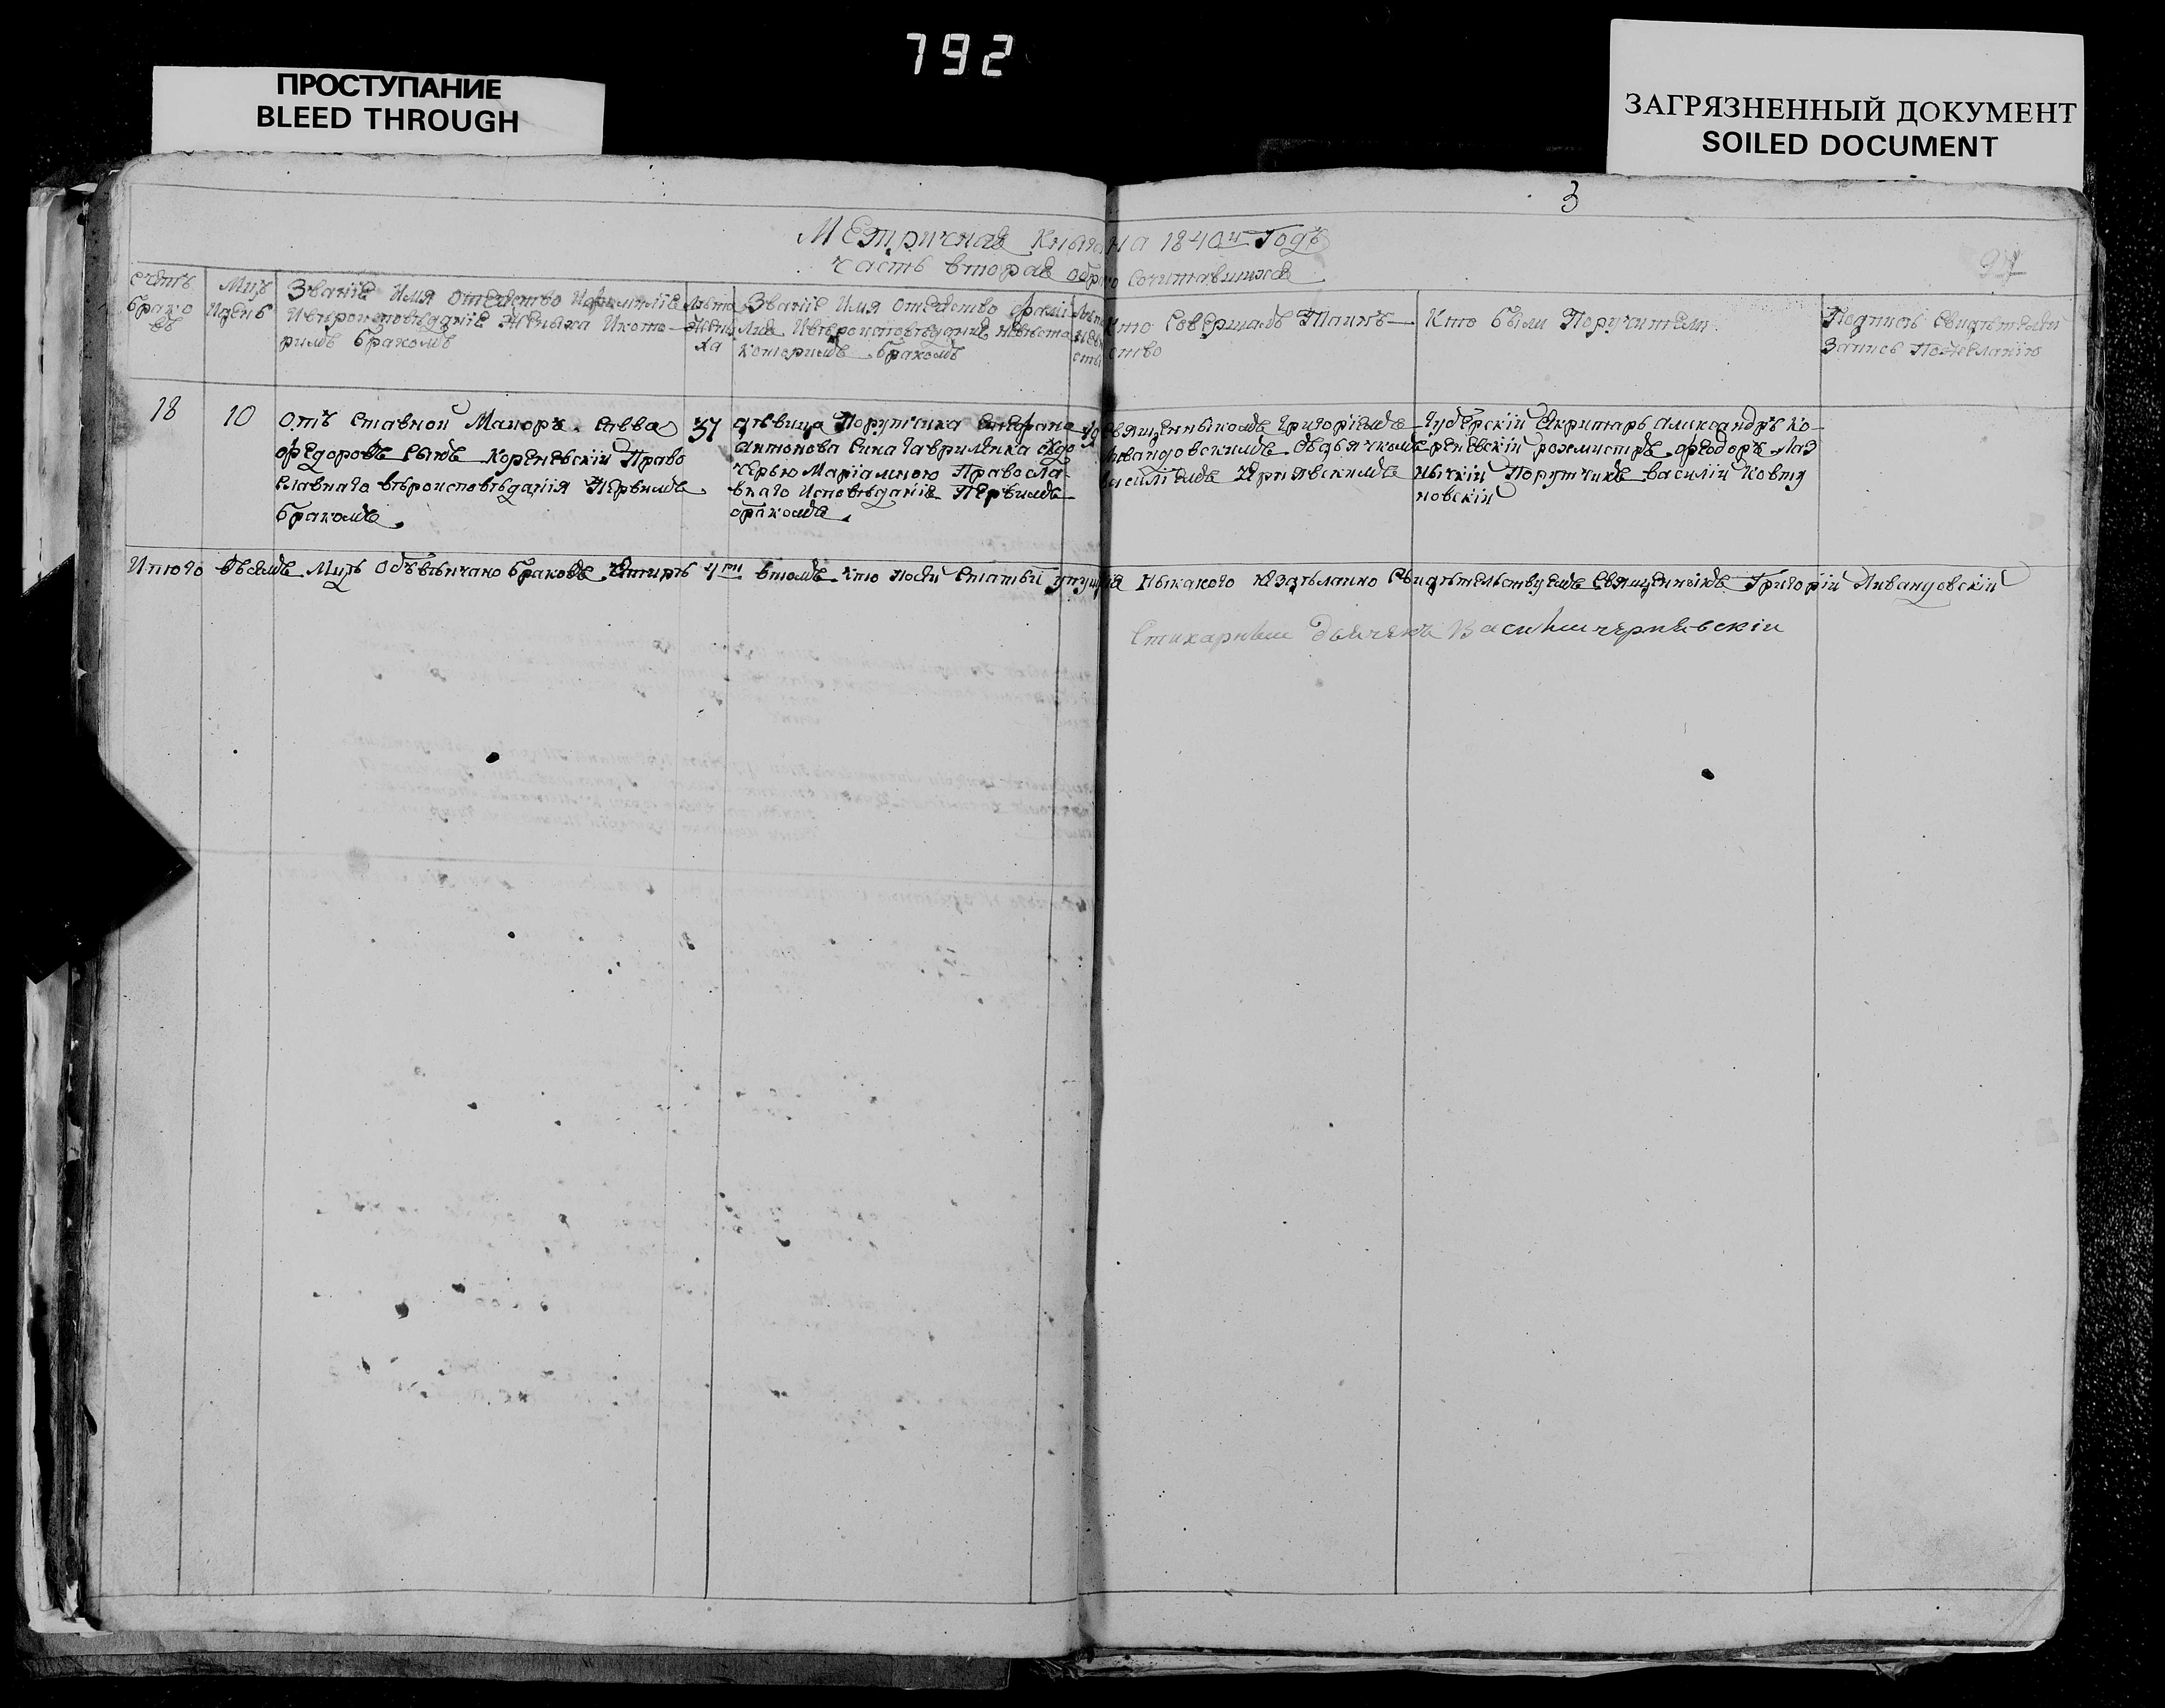 792
ПРОСТУПАНИЕ
BLEED THROUGH
ЗАГРЯЗНЕННЫЙ ДОКУМЕНТ
SOILED DOCUMENT
3
Метричная Книга на 1840й Годъ
часть вторая о бракосочитавшихся
счетъ
брако
въ
Мцъ
И день
Званіе Имя Отечество И фамиліе
И вероисповѣданіе Жениха И кото-
римъ бракомъ
Лѣто
Жени
ха
Званіе Имя Отечество Фами
лія Ивѣроисповѣданіе Невѣста
которимъ бракомъ
Лѣто
невѣ
сты
Кто Совершалъ Таинъ-
ство
Кто были Поручители
Подпись Свидѣтелей
Запись По желанію
18
10
Отъ Ставной Маиоръ Савва
Федоровъ Сынъ Кореневскій Право
славнаго вѣроисповѣданія Первимъ
бракомъ
37
дѣвица Порутчика Стефана
Антонова Сина Гавриленка здо
черью Маріамною Правосла-
внаго Исповѣданія Первимъ
бракомъ
19
Священныкомъ Григоріемъ
Ливандовскимъ Здьячкомъ
Василіемъ Чернявскимъ
Губерскій Секритарь Александръ Ко-
реневскій рожмистръ Феодоръ Лаз
ныскій Порутчикъ Василій Ковту
новскій
Итого Всемъ Мцѣ Обвѣнчано браковъ Четири 4ри втомъ что посей Статьи упущенія Ныкакого не здѣлано Свидѣтельствуемъ Священныкъ Григорій Ливандовскій
Стихарный Дьячекъ Василий чернявскій